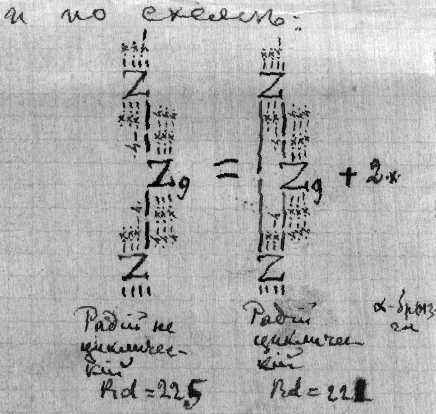 и по схемѣ:
Z Z
Z₉ = Z₉ + 2·x·
Z Z
Радій не
цикличес-
кій
Rd = 225
Радій
цикличес
кій
Rd = 221
α-брыз-
ги